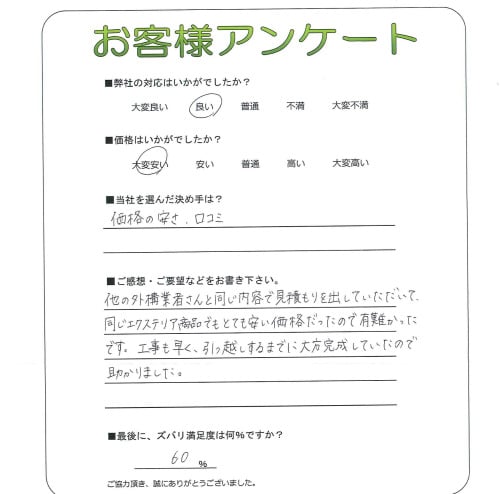 お客様アンケート
■弊社の対応はいかがでしたか？
大変良い 良い 普通 不満 大変不満
■価格はいかがでしたか？
大変安い 安い 普通 高い 大変高い
■当社を選んだ決め手は？
価格の安さ、口コミ
■ご感想・ご要望などをお書き下さい。
他の外構業者さんと同じ内容で見積もりを出していただいて、
同じエクステリア商品でもとても安い価格だったので有難かった
です。工事も早く、引っ越しするまでに大方完成していたので
助かりました。
■最後に、ズバリ満足度は何％ですか？
60 ％
ご協力頂き、誠にありがとうございました。